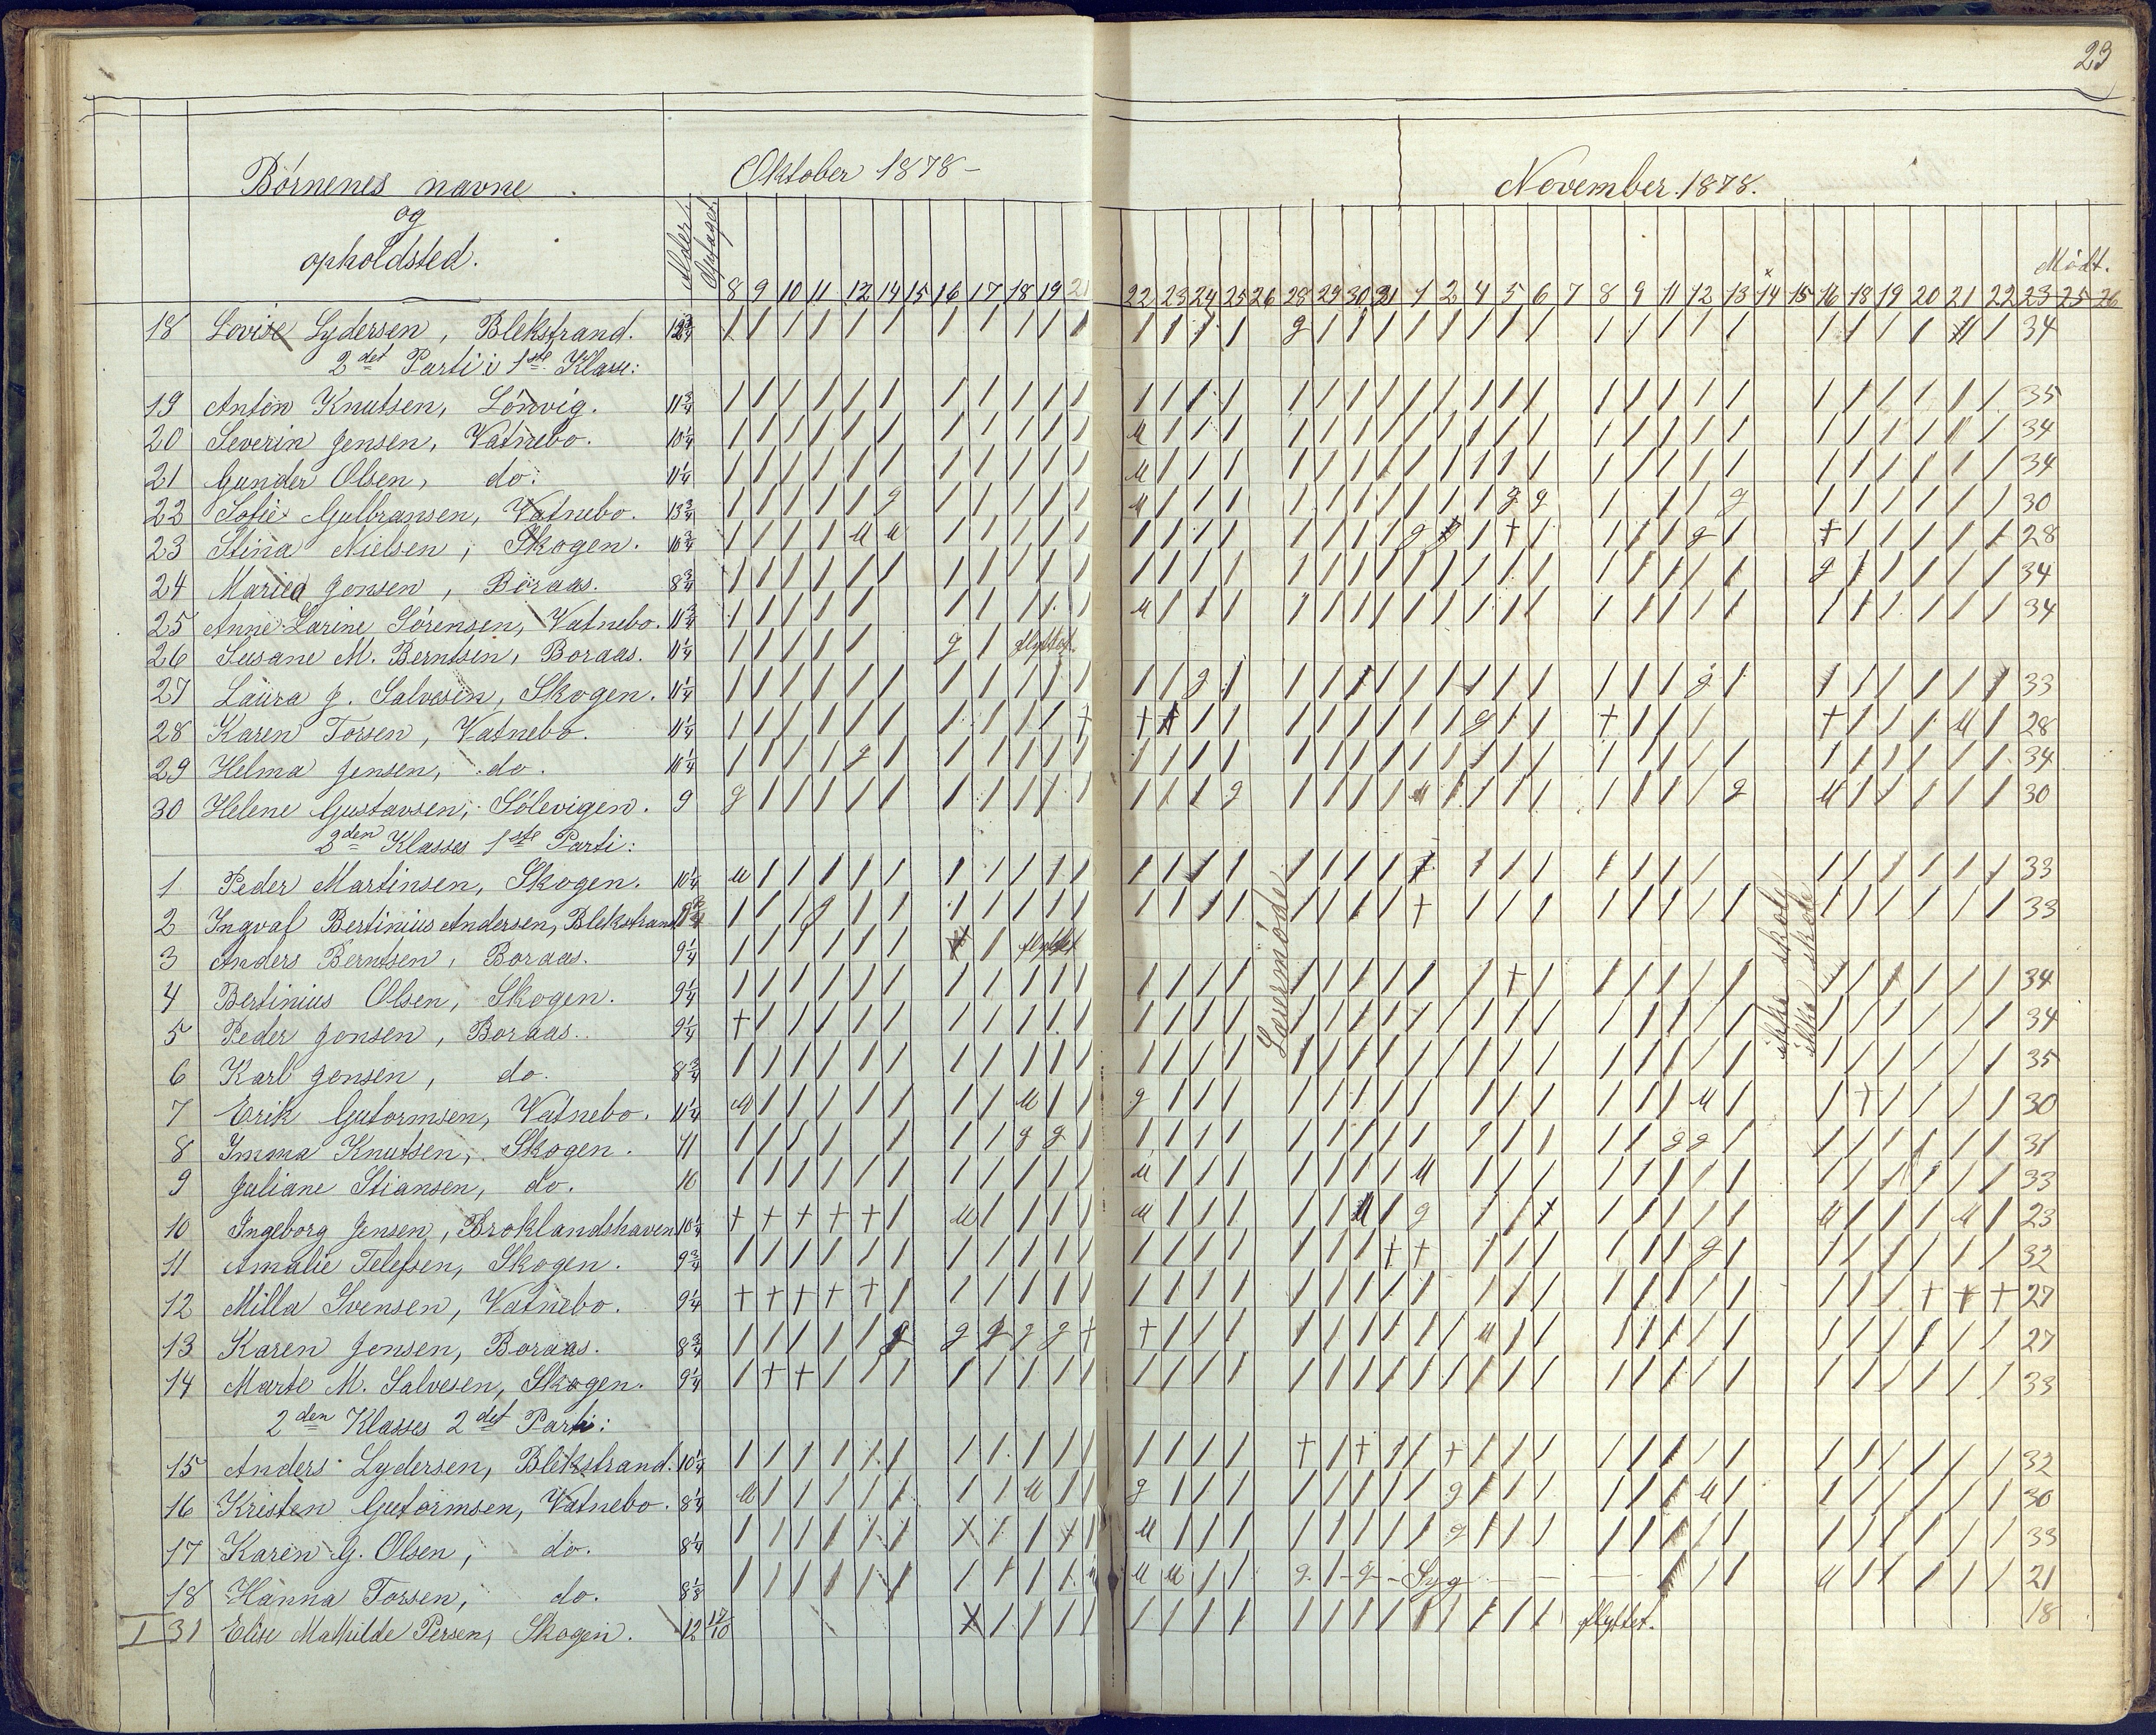 23
Børnenes navne
og
opholdsted.
Alder.
Optaget.
Oktober 1878 –
November 1878.
8 9 10 11 12 14 15 16 17 18 19 21 22 23 24 25 26 28 29 30 31 1 2 4 5 6 7 8 9 11 12 13 14 15 16 18 19 20 21 22 23 25 26
Mødt.
18 Lovise Lydersen, Blekstrand. 12 3/4 34
2det Parti i 1ste Klasse:
19 Anton Knutsen, Lönvig. 11 3/4 35
20 Severin Jensen, Vatnebo. 10 1/4 34
21 Gunder Olsen, do. 11 1/4 34
22 Sofie Gulbransen, Vatnebo. 13 3/4 30
23 Stina Nielsen, Skogen. 10 3/4 28
24 Maria Jonsen, Boraas. 8 3/4 34
25 Anne Larine Sörensen, Vatnebo. 11 3/4 34
26 Susane M. Berntsen, Boraas. 11 1/4 flyttet.
27 Laura J. Salvesen, Skogen. 11 1/4 33
28 Karen Torsen, Vatnebo. 11 1/4 28
29 Helma Jensen, do. 10 1/4 34
30 Helene Gustavsen, Sölevigen. 9 30
2den Klasses 1ste Parti:
1 Peder Martinsen, Skogen. 10 1/4 33
2 Ingvaf Bertinius Andersen, Blekstrand 33
3 Anders Berntsen, Boraas. 9 1/4 flyttet
4 Bertinius Olsen, Skogen. 9 1/4 34
5 Peder Jonsen, Boraas. 9 1/4 34
6 Karl Jonsen, do. 8 3/4 35
7 Erik Gutormsen, Vatnebo. 11 1/4 30
8 Imma Knutsen, Skogen. 11 31
9 Juliane Stiansen, do. 10 33
10 Ingeborg Jensen, Broklandshaven 10 1/4 23
11 Amalie Telefsen, Skogen. 9 3/4 32
12 Milla Svensen, Vatnebo. 9 1/4 27
13 Karen Jonsen, Boraas. 8 3/4 27
14 Marte M. Salvesen, Skogen. 9 1/4 33
2den Klasses 2det Parti:
15 Anders Lydersen, Blekstrand. 10 1/4 32
16 Kristen Gutormsen, Vatnebo. 8 1/4 30
17 Karen G. Olsen, do. 8 1/4 33
18 Hanna Torsen, do. 8 1/8 Syg 21
I 31 Elise Mathilde Persen, Skogen. 12 17/10 flyttet. 18
Lærermöde
ikke skole
ikke skole